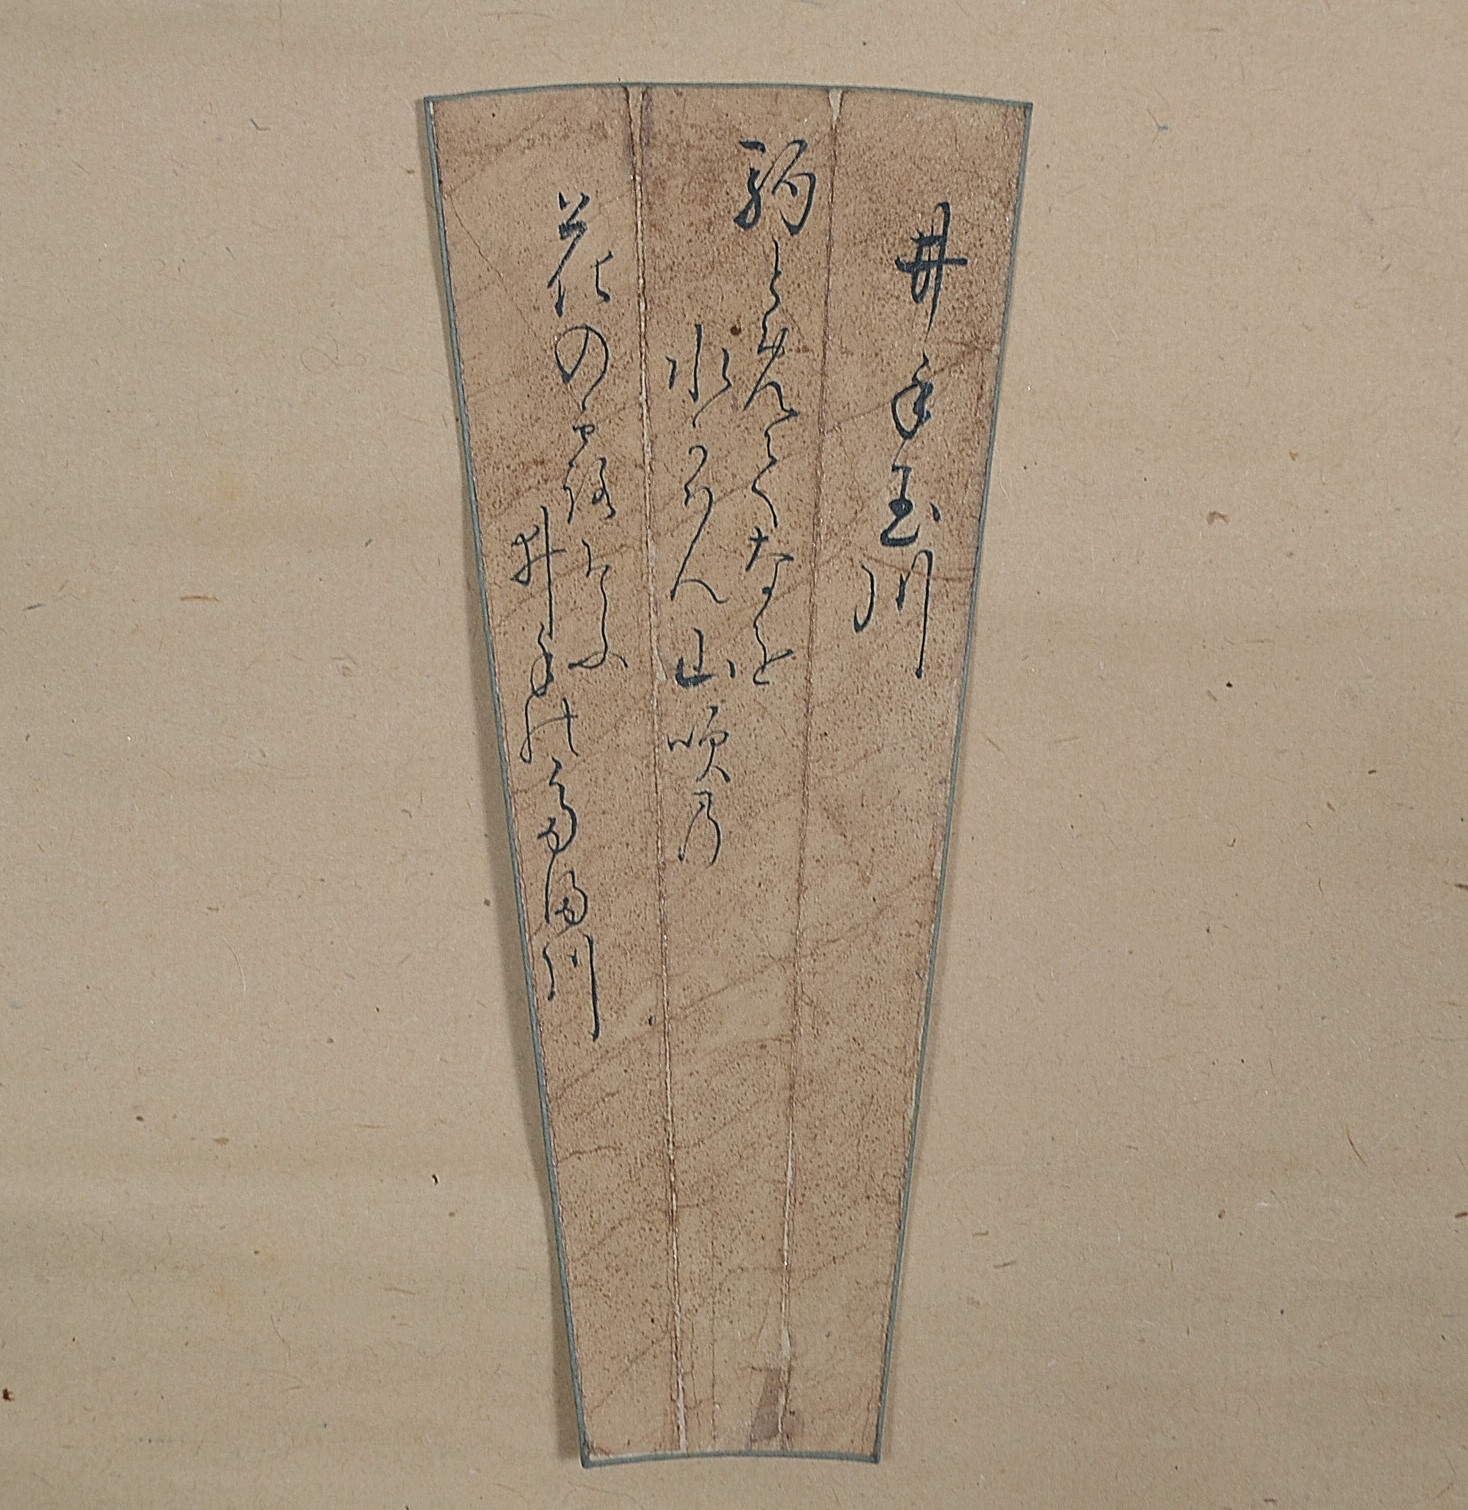 井手玉川
駒とめてなを
水かはん山吹乃
花の露そふ
井手のたま川